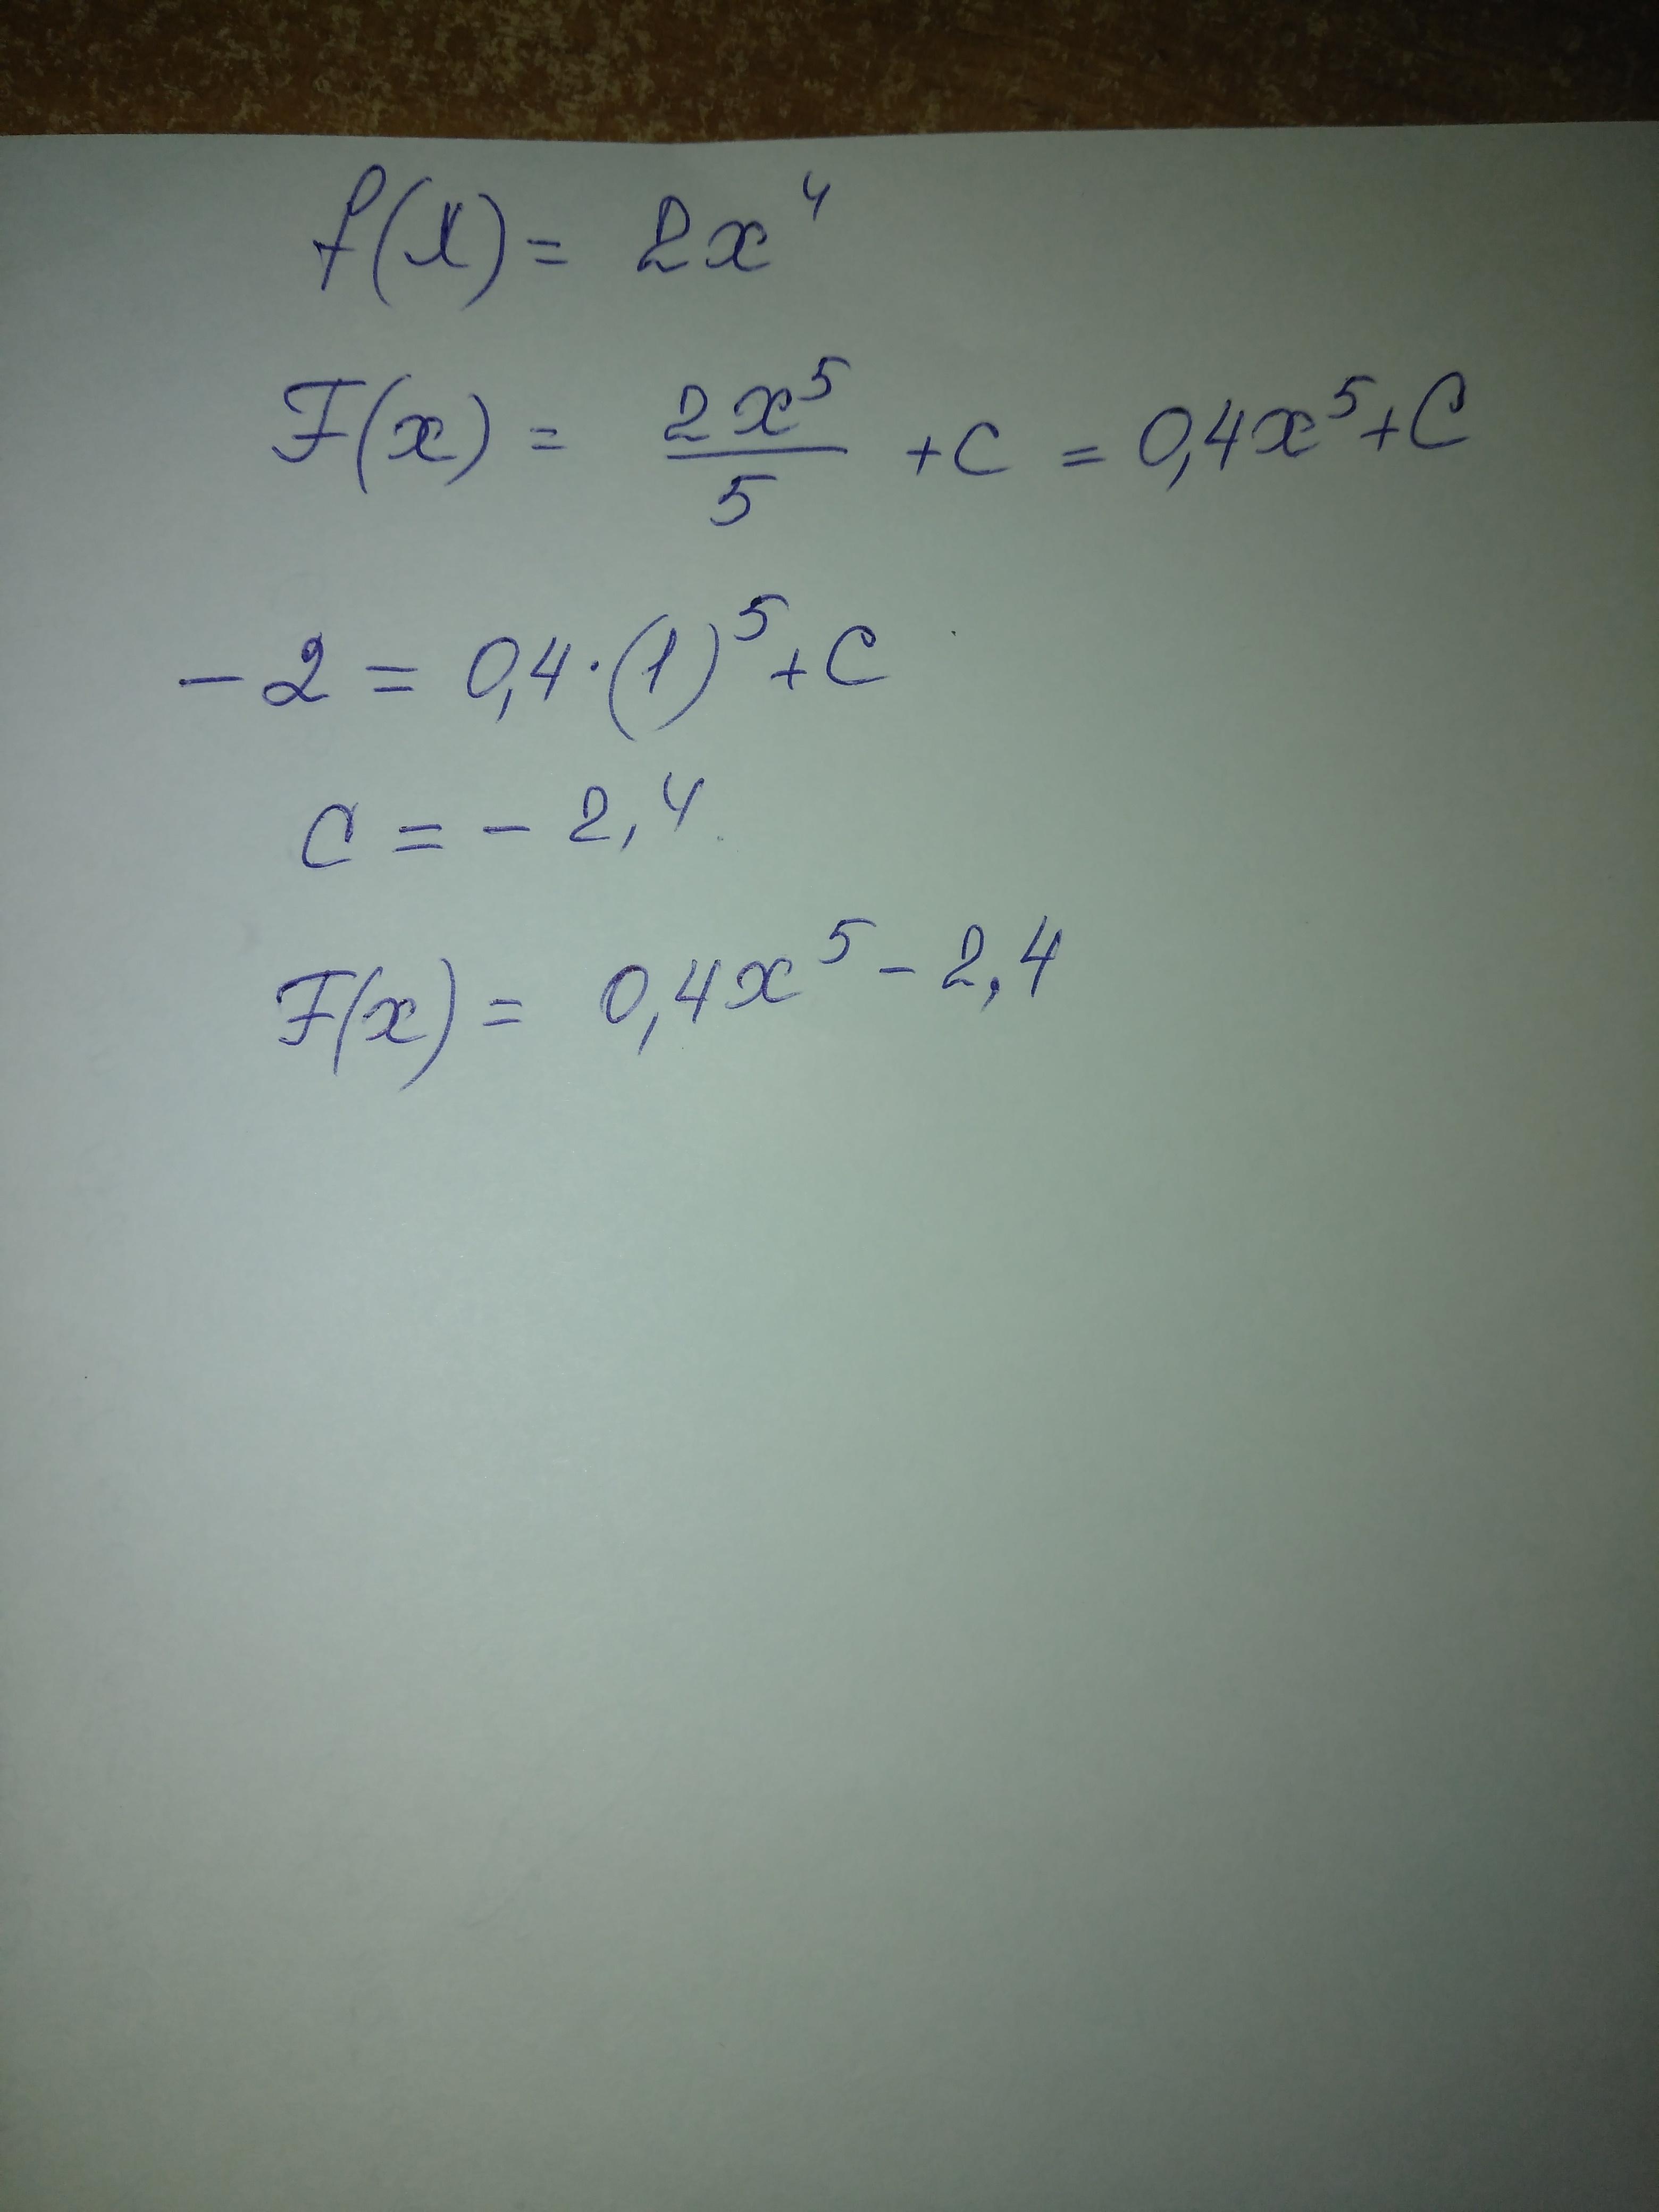 f(x) = 2x⁴
F(x) = 2x⁵/5 + C = 0,4x⁵ + C
- 2 = 0,4 · (1)⁵ + C
C = - 2,4
F(x) = 0,4x⁵ - 2,4